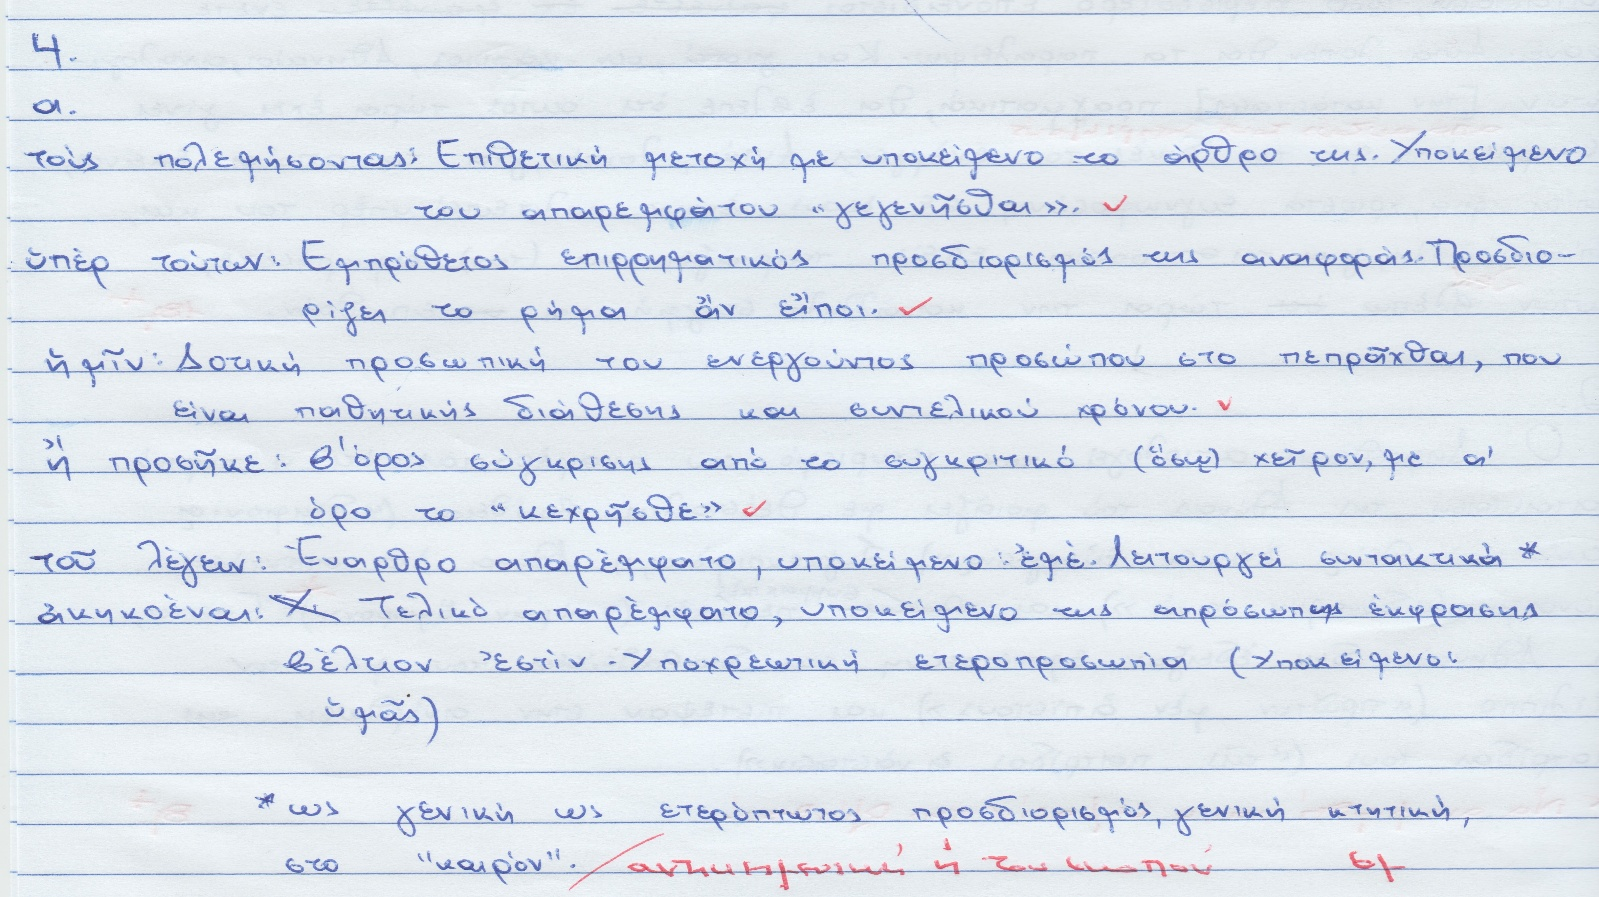 4.
α.
τοὺς πολεμήσοντας: Επιθετική μετοχή με υποκείμενο το άρθρο της. Υποκείμενο
του απαρεμφάτου «γεγενῆσθαι». ✓
ὑπὲρ τούτων: Εμπρόθετος επιρρηματικός προσδιορισμός της αναφοράς. Προσδιο-
ρίζει το ρήμα ἂν εἴποι. ✓
ἡμῖν: Δοτική προσωπική του ενεργούντος προσώπου στο πεπρᾶχθαι, που
είναι παθητικής διάθεσης και συντελικού χρόνου. ✓
ἢ προσῆκε: β' όρος σύγκρισης από το συγκριτικό (ὅσῳ) χεῖρον, με α'
όρο το "κεχρῆσθε" ✓
τοῦ λέγειν: Έναρθρο απαρέμφατο, υποκείμενο: ἐμέ. Λειτουργεί συντακτικά *
ἀκηκοέναι: Τελικό απαρέμφατο, υποκείμενο της απρόσωπης έκφρασης
βέλτιον ἐστίν. Υποχρεωτική ετεροπροσωπία (Υποκείμενο:
ὑμᾶς)
* ως γενική ως ετερόπτωτος προσδιορισμός, γενική κτητική,
στο "καιρόν". / αντικειμενική ή του σκοπού